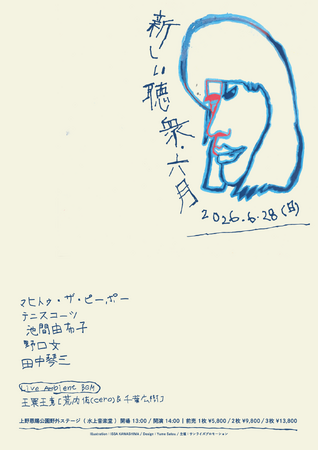 新しい聴衆・六月
2026.6.28(日)
マヒトゥ・ザ・ピーポー
テニスコーツ
池間由布子
野口文
田中琴三
Live Ambient BGM
荒内佑(cero)&千葉広樹
上野恩賜公園野外ステージ(水上音楽堂) 開場 13:00 / 開演 14:00 | 前売 1枚 ¥5,800 / 2枚 ¥9,800 / 3枚 ¥13,800
Illustration : ISSA KAWASHIMA / Design : Yunro Saisu / 主催:サンライズプロモーション